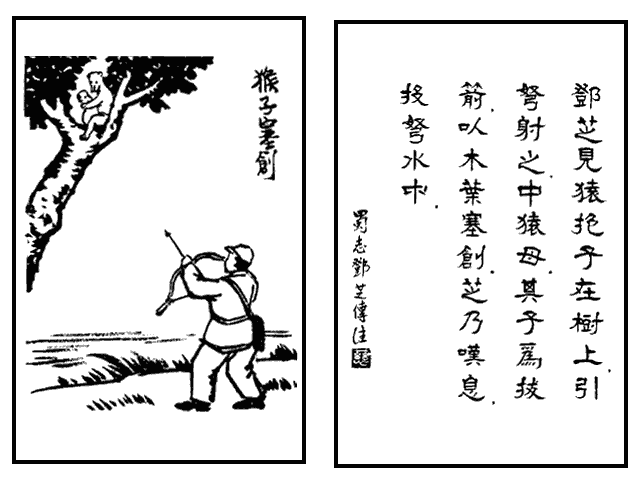 猴子塞創
鄧芝見猿抱子在樹上.引
弩射之.中猿母.其子爲拔
箭.以木葉塞創.芝乃嘆息.
投弩水中.
蜀志鄧芝傳注